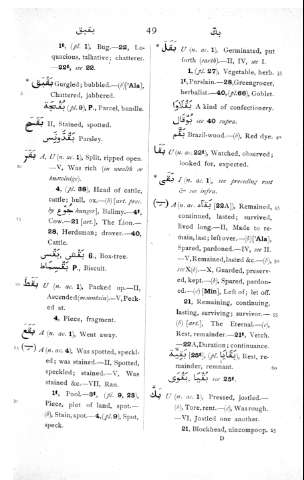 بقبق 49 بك
1t, (pl. 1), Bug.—22, Lo-
quacious, talkative; chatterer.
—22t, see 22.
بَقْبَقَ Gurgled; bubbled.—(b)['Ala],
Chattered, jabbered.
بُقْجَة (pl. 9), P., Parcel, bundle.
بَقَّعَ II, Stained, spotted.
بَقْدُونِس Parsley.
بَقَرَ A, U (n. ac. 1), Split, ripped open.
—V, Was rich (in wealth or
knowledge).
4, (pl. 38), Head of cattle,
cattle; bull, ox.—(b) [art. prec.
by جُوع hunger], Bulimy.—4t,
Cow.—21 [art.], The Lion.—
28, Herdsman; drover.—40,
Cattle.
بَقْس, بَقْسِي 6., Box-tree.
بَقْسِمَاط P., Biscuit.
بَقَطَ U (n. ac. 1), Packed up.—II,
Ascended (mountain).—V, Peck-
ed at.
4, Piece, fragment.
بَقَعَ A (n. ac. 1), Went away.
(ـِـ) A (n. ac. 4), Was spotted, speckl-
ed; was stained.—II, Spotted,
speckled; stained.—V, Was
stained &c.—VII, Ran.
1t, Pool.—3t, (pl. 9, 23),
Piece, plot of land, spot.—
(b), Stain, spot.—4, (pl. 9), Spot,
speck.
بَقَلَ U (n. ac. 1), Germinated, put
forth (earth).—II, IV, see I.
1, (pl. 27), Vegetable, herb.
1t, Purslain.—28, Greengrocer,
herbalist.—40, (pl. 66), Goblet.
بَقْلَاوَا A kind of confectionery.
بُوقَال see 40 supra.
بَقَّم Brazil-wood.—(b), Red dye.
بَقَا U (n. ac. 22t), Watched, observed;
looked for, expected.
بَقَى I (n. ac. 1), see preceding root
& see infra.
(ـِـ) A (n. ac. بَقَاء [22A]), Remained,
continued, lasted; survived,
lived long.—II, Made to re-
main, last; left over.—(b)['Ala],
Spared, pardoned.—IV, see II.
—V, Remained, lasted &c.—(b),
see X(b).—X, Guarded, preserv-
ed, kept.—(b), Spared, pardon-
ed.—(c) [Min], Left of; let off.
21, Remaining, continuing,
lasting, surviving; survivor.—
(b) [art.], The Eternal.—(c),
Rest, remainder.—21t, Vetch.
—22A, Duration; continuance.
بَقِيَّة [25t], (pl. بَقَايَا), Rest, re-
mainder, remnant.
بُقْيَا, بَقْوَى see 25t.
بَكَّ U (n. ac. 1), Pressed, jostled.—
(b), Tore, rent.—(c), Was rough.
—VI, Jostled one another.
21, Blockhead, nincompoop.
D